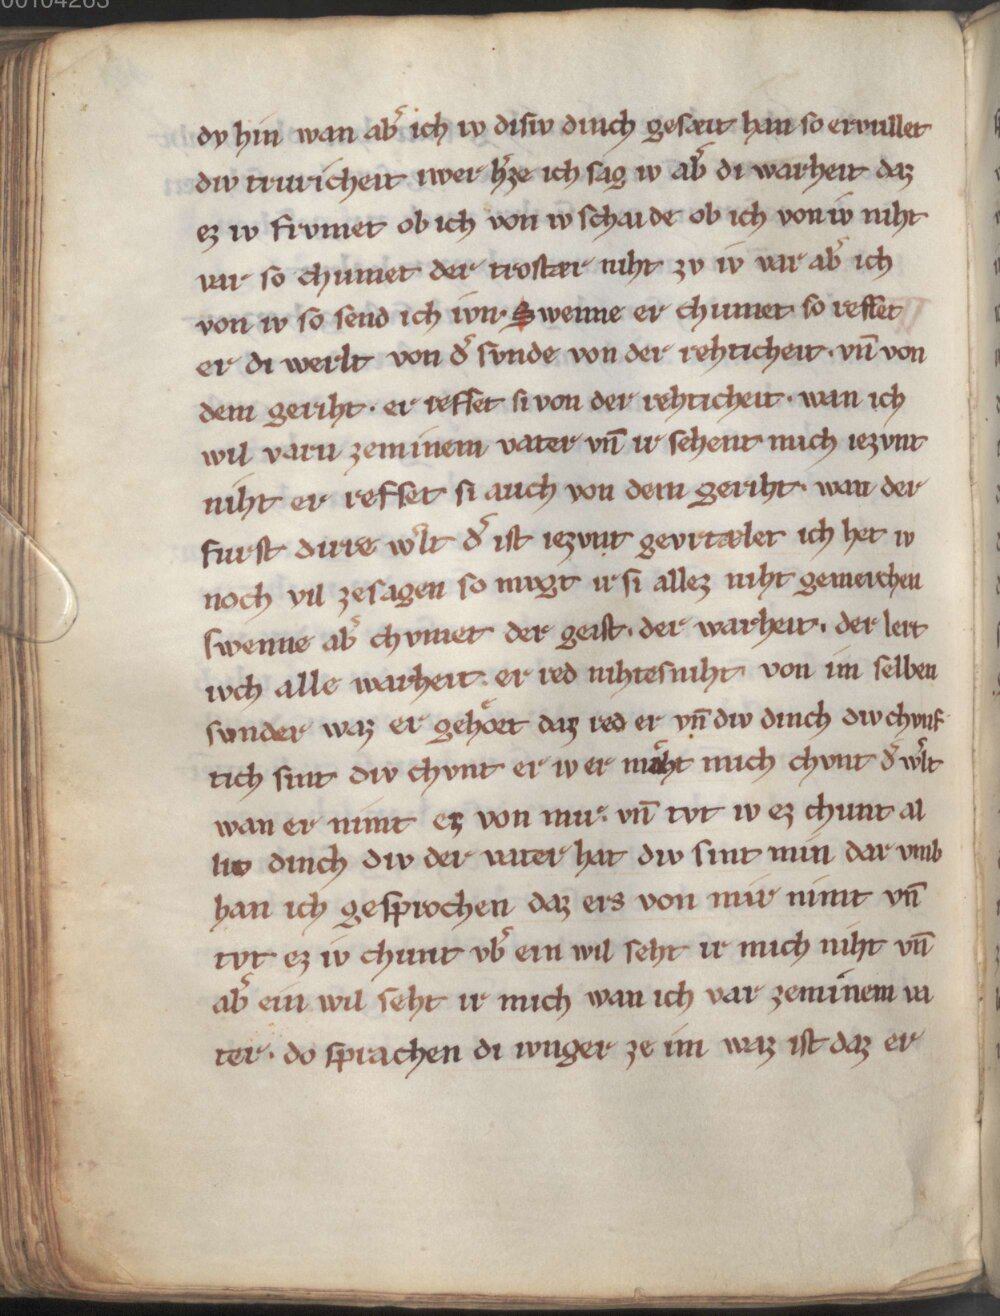 00104263
dv hin wan ab͛ ich iv disiv dinch gesæit han so ervullet
div truricheit iwer h͛ze ich sag iv ab͛ di warheit daz
ez iv frvmet ob ich von iv schaide ob ich von iv niht
var so chumet der trostær niht zv iv var ab͛ ich
von iv so send ich ivn· Swenne er chumet so reffet
er di werlt von d͛ svnde von der rehticheit· vn̄ von
dem geriht· er reffet si von der rehticheit· wan ich
wil varn zeminem vater vn̄ ir sehent mich iezvnt
niht er reffet si auch von dem geriht· wan der
furst dirre w͛lt d͛ ist iezvnt gevrtælet ich het iv
noch vil zesagen so mvgt ir si allez niht gemerchen
swenne ab͛ chvmet der geist· der warheit· der lert
ivch alle warheit· er red nihtesniht von im selben
svnder waz er gehoͤret daz red er vn̄ div dinch div chvnf
tich sint div chvnt er iv er mæht mich chvnt d͛ w͛lt
wan er nimt ez von mir· vn̄ tvt iv ez chunt al
liv dinch div der vater hat div sint min dar vmb
han ich gesprochen daz ers von mir nimt vn̄
tvt ez iv chunt vb͛ ein wil seht ir mich niht vn̄
ab͛ ein wil seht ir mich wan ich var zeminem va
ter· do sprachen di ivnger ze im waz ist daz er